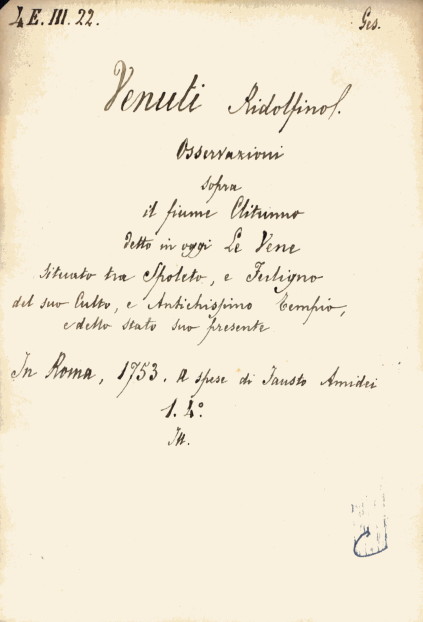 4 E. III. 22. Ges.
Venuti Ridolfino
Osservazioni
sopra
il fiume Clitunno
detto in oggi Le Vene
situato tra Spoleto, e Fuligno
del suo Culto, e Antichissimo Tempio,
e dello stato suo presente
In Roma, 1753. a spese di Fausto Amidei
1. 4º.